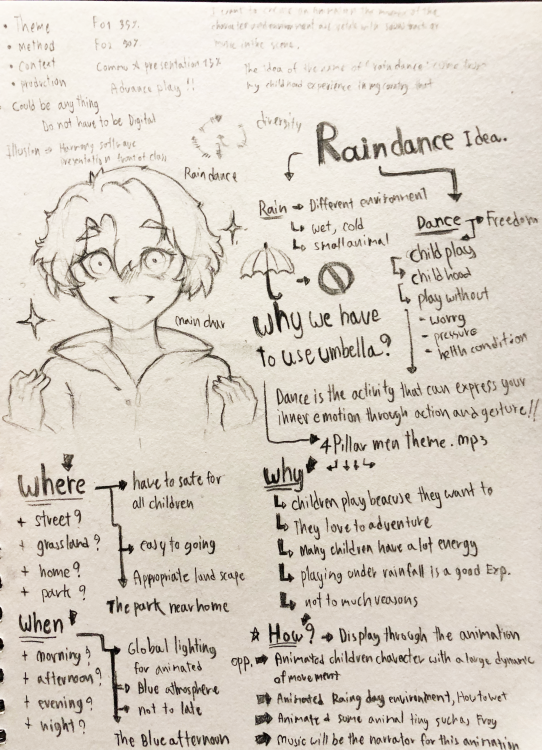 • Theme For 35%
• Method For 30%
• Context Commu & presentation 15%
• production Advance play !!
Could be any thing
Do not have to be Digital
Illusion ⇒ Harmony software
presentation front of class
music in the scene.
The idea of the name of "raindance" come from
my childhood experience in my country that
diversity
Rain dance
Raindance Idea.
Rain → Different environment
↳ wet, cold
↳ small animal
Dance → Freedom
child play
↳ child hood
↳ play without
- worry
- pressure
- helth condition
Why we have
to use umbella?
main char
Dance is the activity that can express your
inner emotion through action and gesture!!
4 Pillar men theme. mp3
Where → have to safe for
all children
+ street?
+ grassland? → easy to going
+ home? → Appropriate land scape
+ park?
The park near home
Why
↳ children play beacuse they want to
↳ They love to adventure
↳ many children have a lot energy
↳ playing under rainfall is a good Exp.
↳ not to much reasons
When → Global lighting
for animated
+ morning?
+ afternoon? → Blue athosphere
+ evening? → not to late
+ night?
The Blue afternoon
☆ How? → Display through the animation
opp. → Animated children character with a large dynamic
of movement
→ Animated Raing day environment, How to Wet
→ Animate d some animal tiny such as Frog
→ Music will be the narrator for this animation